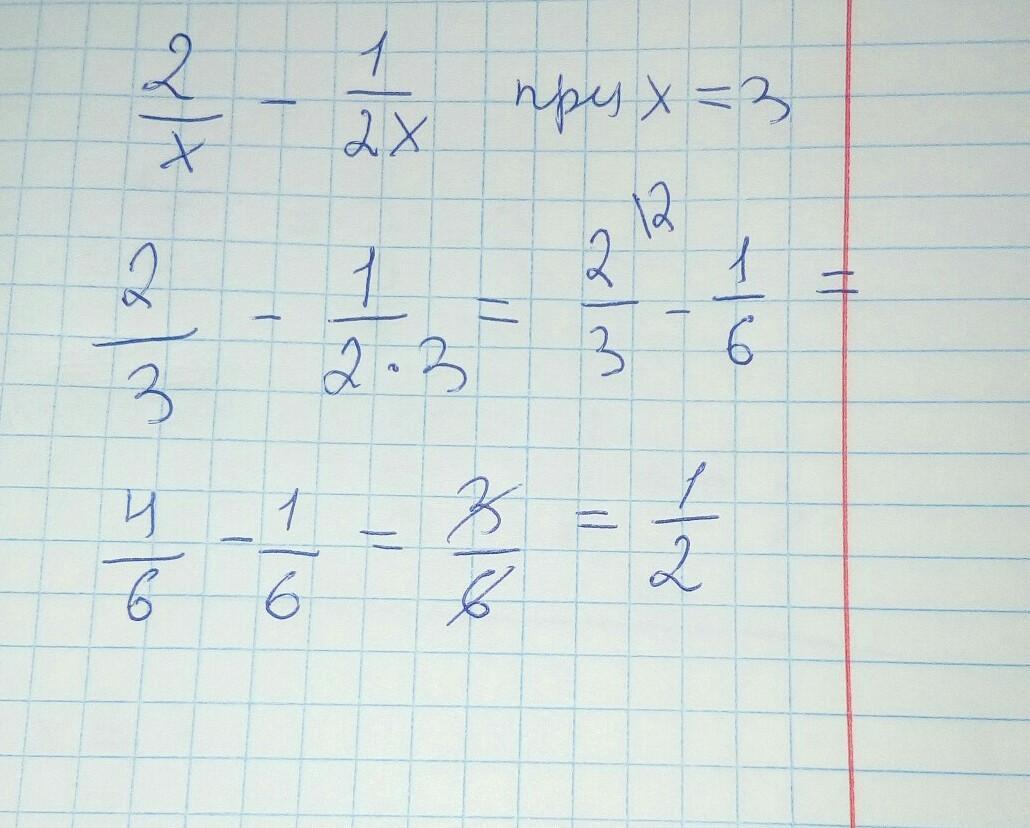 2/x - 1/2x при x = 3
2/3 - 1/2·3 = 2\2/3 - 1/6 =
4/6 - 1/6 = 3/6 = 1/2